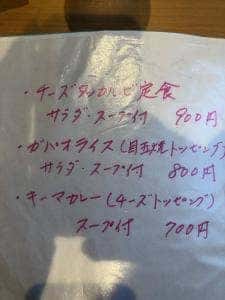 ・チーズダッカルビ定食
サラダ・スープ付 900円
・ガパオライス(目玉焼トッピング)
サラダ・スープ付 800円
・キーマカレー(チーズトッピング)
スープ付 700円